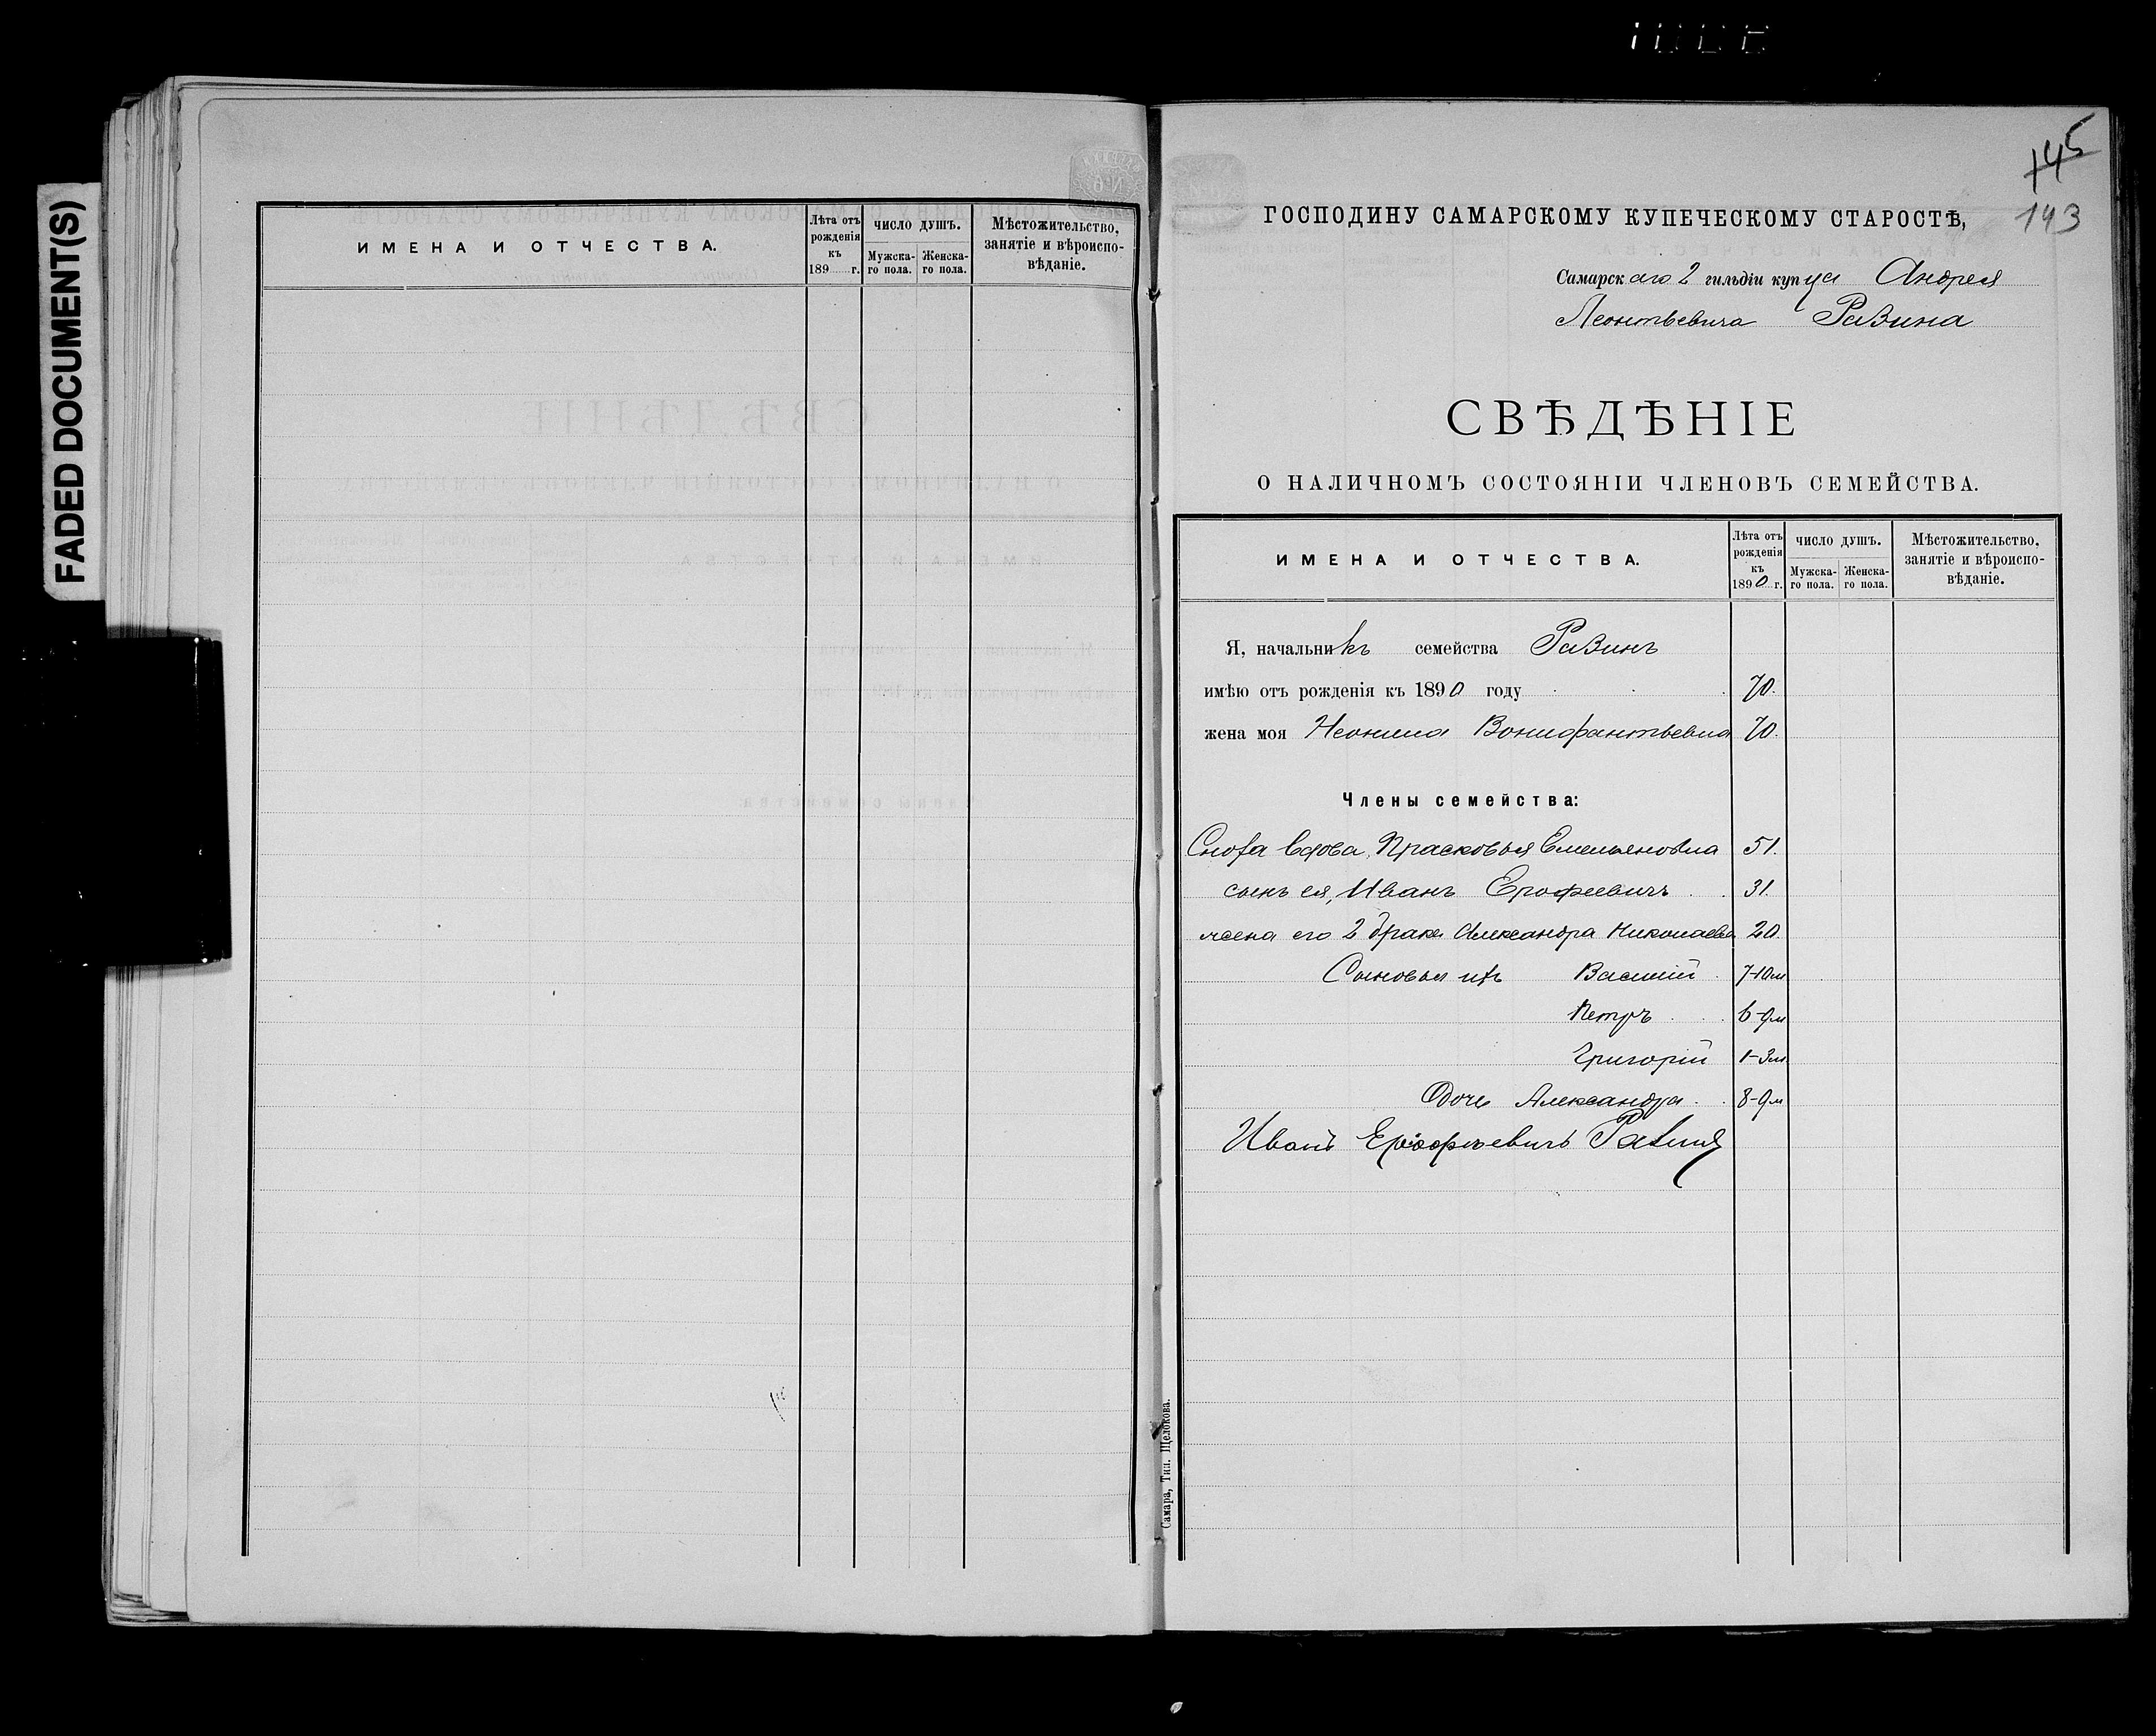 FADED DOCUMENT(S)
ИМЕНА И ОТЧЕСТВА.
Лѣта отъ рожденія къ 189 г.
ЧИСЛО ДУШЪ.
Мужска-го пола.
Женска-го пола.
Мѣстожительство, занятіе и вѣроиспо-вѣданіе.
145
143
ГОСПОДИНУ САМАРСКОМУ КУПЕЧЕСКОМУ СТАРОСТѢ,
Самарскаго 2 гильдіи купца Андрея
Леонтьевича Разина
СВѢДѢНІЕ
О НАЛИЧНОМЪ СОСТОЯНІИ ЧЛЕНОВЪ СЕМЕЙСТВА.
ИМЕНА И ОТЧЕСТВА.
Лѣта отъ рожденія къ 1890 г.
ЧИСЛО ДУШЪ.
Мужска-го пола.
Женска-го пола.
Мѣстожительство, занятіе и вѣроиспо-вѣданіе.
Я, начальникъ семейства Разинъ
имѣю отъ рожденія къ 1890 году 70.
жена моя Неонила Вонифантьевна 70.
Члены семейства:
Сноха вдова, Прасковья Емельяновна 51.
сынъ ея, Иванъ Ерофеевичъ 31.
жена его 2 брака Александра Николаевна 20.
Сыновья ихъ Василій 7-10м
Петръ 6-9м
Григорій 1-3м
Дочь Александра 8-9м
Иванъ Ерофѣевичъ Разинъ
Самара, Тип. Щелокова.